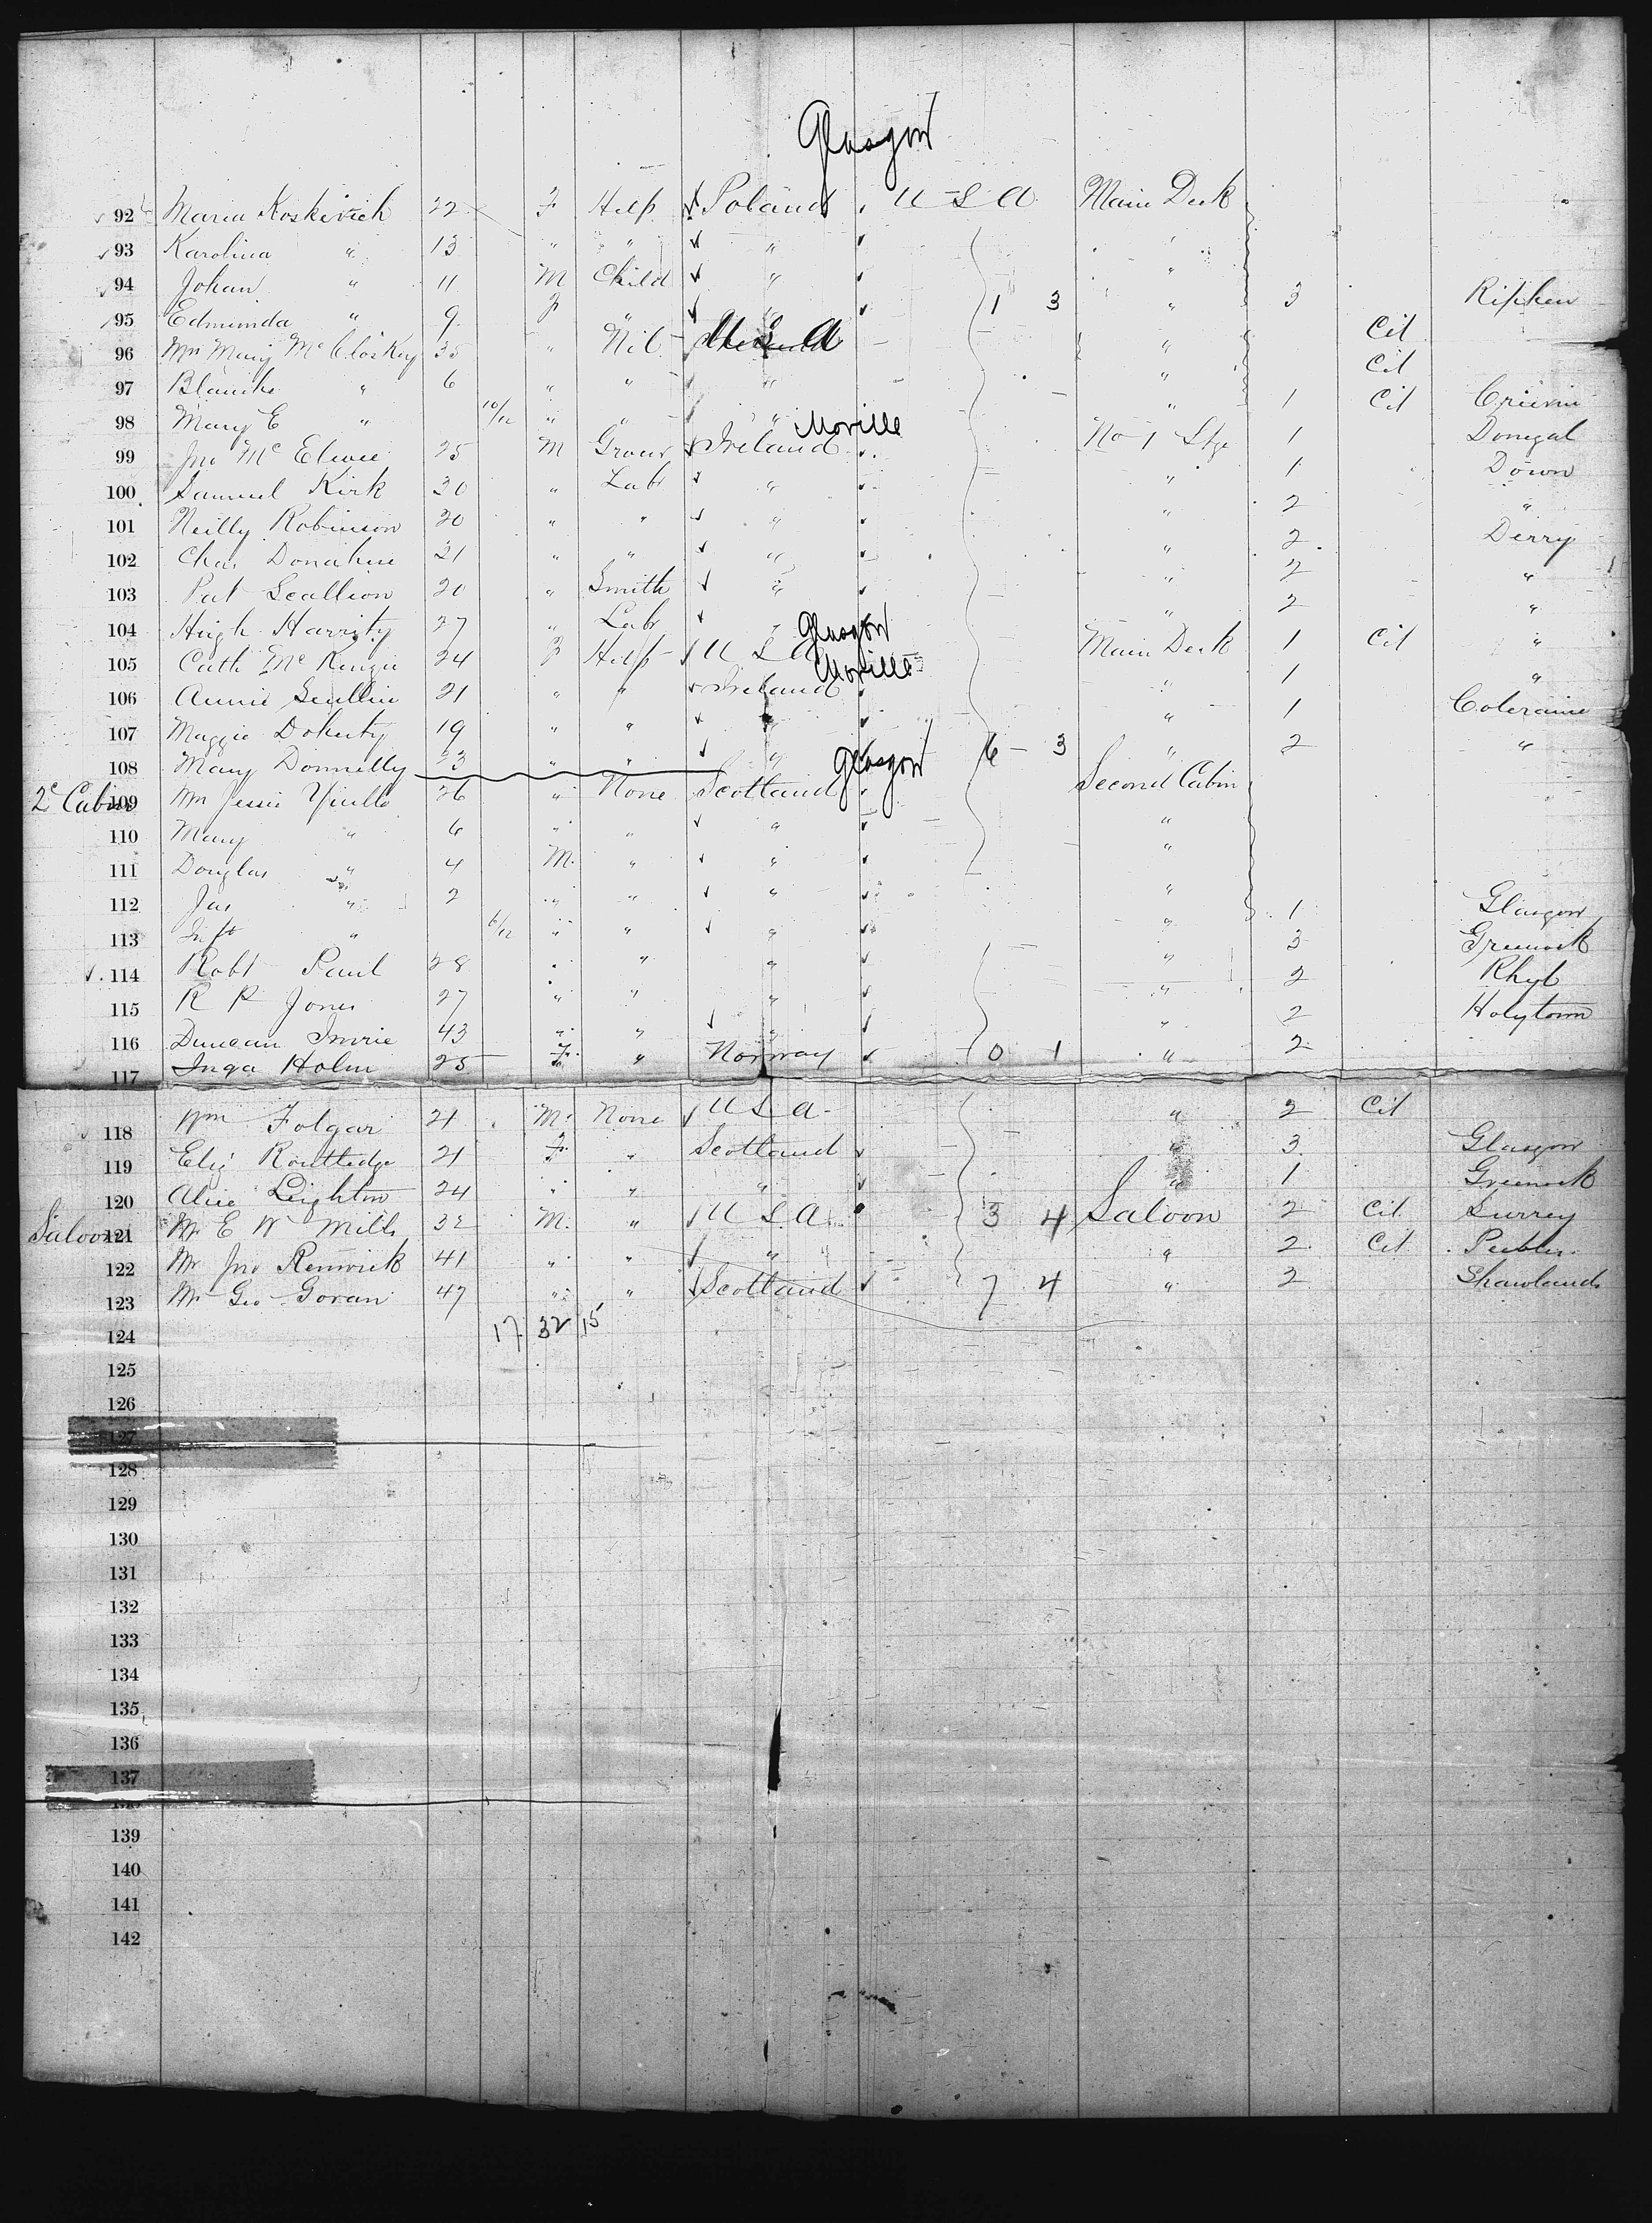 Glasgow
92 Maria Koskevich 22 F Help Poland U S A Main Deck
93 Karolina " 13 " " " "
94 Johan " 11 M Child " "
95 Edmunda " 9 F " " 1 3 " 3 Ripken
96 Mrs Mary McCloskey 35 " Nil U S A " Cit
97 Blanche " 6 " " " " Cit
98 Mary E " 10/12 " " " " 1 Cit
Moville
99 Jno McElwee 25 M Ireland No 1 Stge 1 Donegal
100 Samuel Kirk 30 " Lab " " 1 Down
101 Neilly Robinson 20 " " " " 2 "
102 Chas Donahue 21 " " " " 2 Derry
103 Pat Scallion 20 " Smith " " 2 "
104 Hugh Harrity 27 " Lab " " 2 "
Glasgow
105 Cath McKenzie 24 F Help U S A Main Deck 1 Cit "
Moville
106 Annie Scullin 21 " " Ireland " 1 "
107 Maggie Doherty 19 " " " " 1 Coleraine
108 Mary Donnelly 23 " " " 6 3 " 2 "
Glasgow
2d Cabin 109 Mrs Jessie Yuille 26 " None Scotland Second Cabin
110 Mary " 6 " " " "
111 Douglas " 4 M. " " "
112 Jas " 2 " " " "
113 Inft " 6/12 " " " " 1 Glasgow
114 Robt Paul 28 " " " " 3 Greenock
115 R P Jones 27 " " " " 2 Rhyl
116 Duncan Imrie 43 " " " " 2 Holytown
117 Inga Holm 25 F. " Norway 0 1 " 2
118 Wm Folgar 21 M. None U S A " 2 Cit
119 Eliz Routledge 21 F. " Scotland " 3 Glasgow
120 Alice Leighton 24 " " " " 1 Greenock
Saloon 121 Mr E W Mills 32 M. " U S A 3 4 Saloon 2 Cit Surrey
122 Mr Jno Renwick 41 " " " " 2 Cit Peebles
123 Mr Geo Govan 47 " " Scotland 7 4 " 2 Shawlands
124 17 32 15
125
126
127
128
129
130
131
132
133
134
135
136
137
139
140
141
142